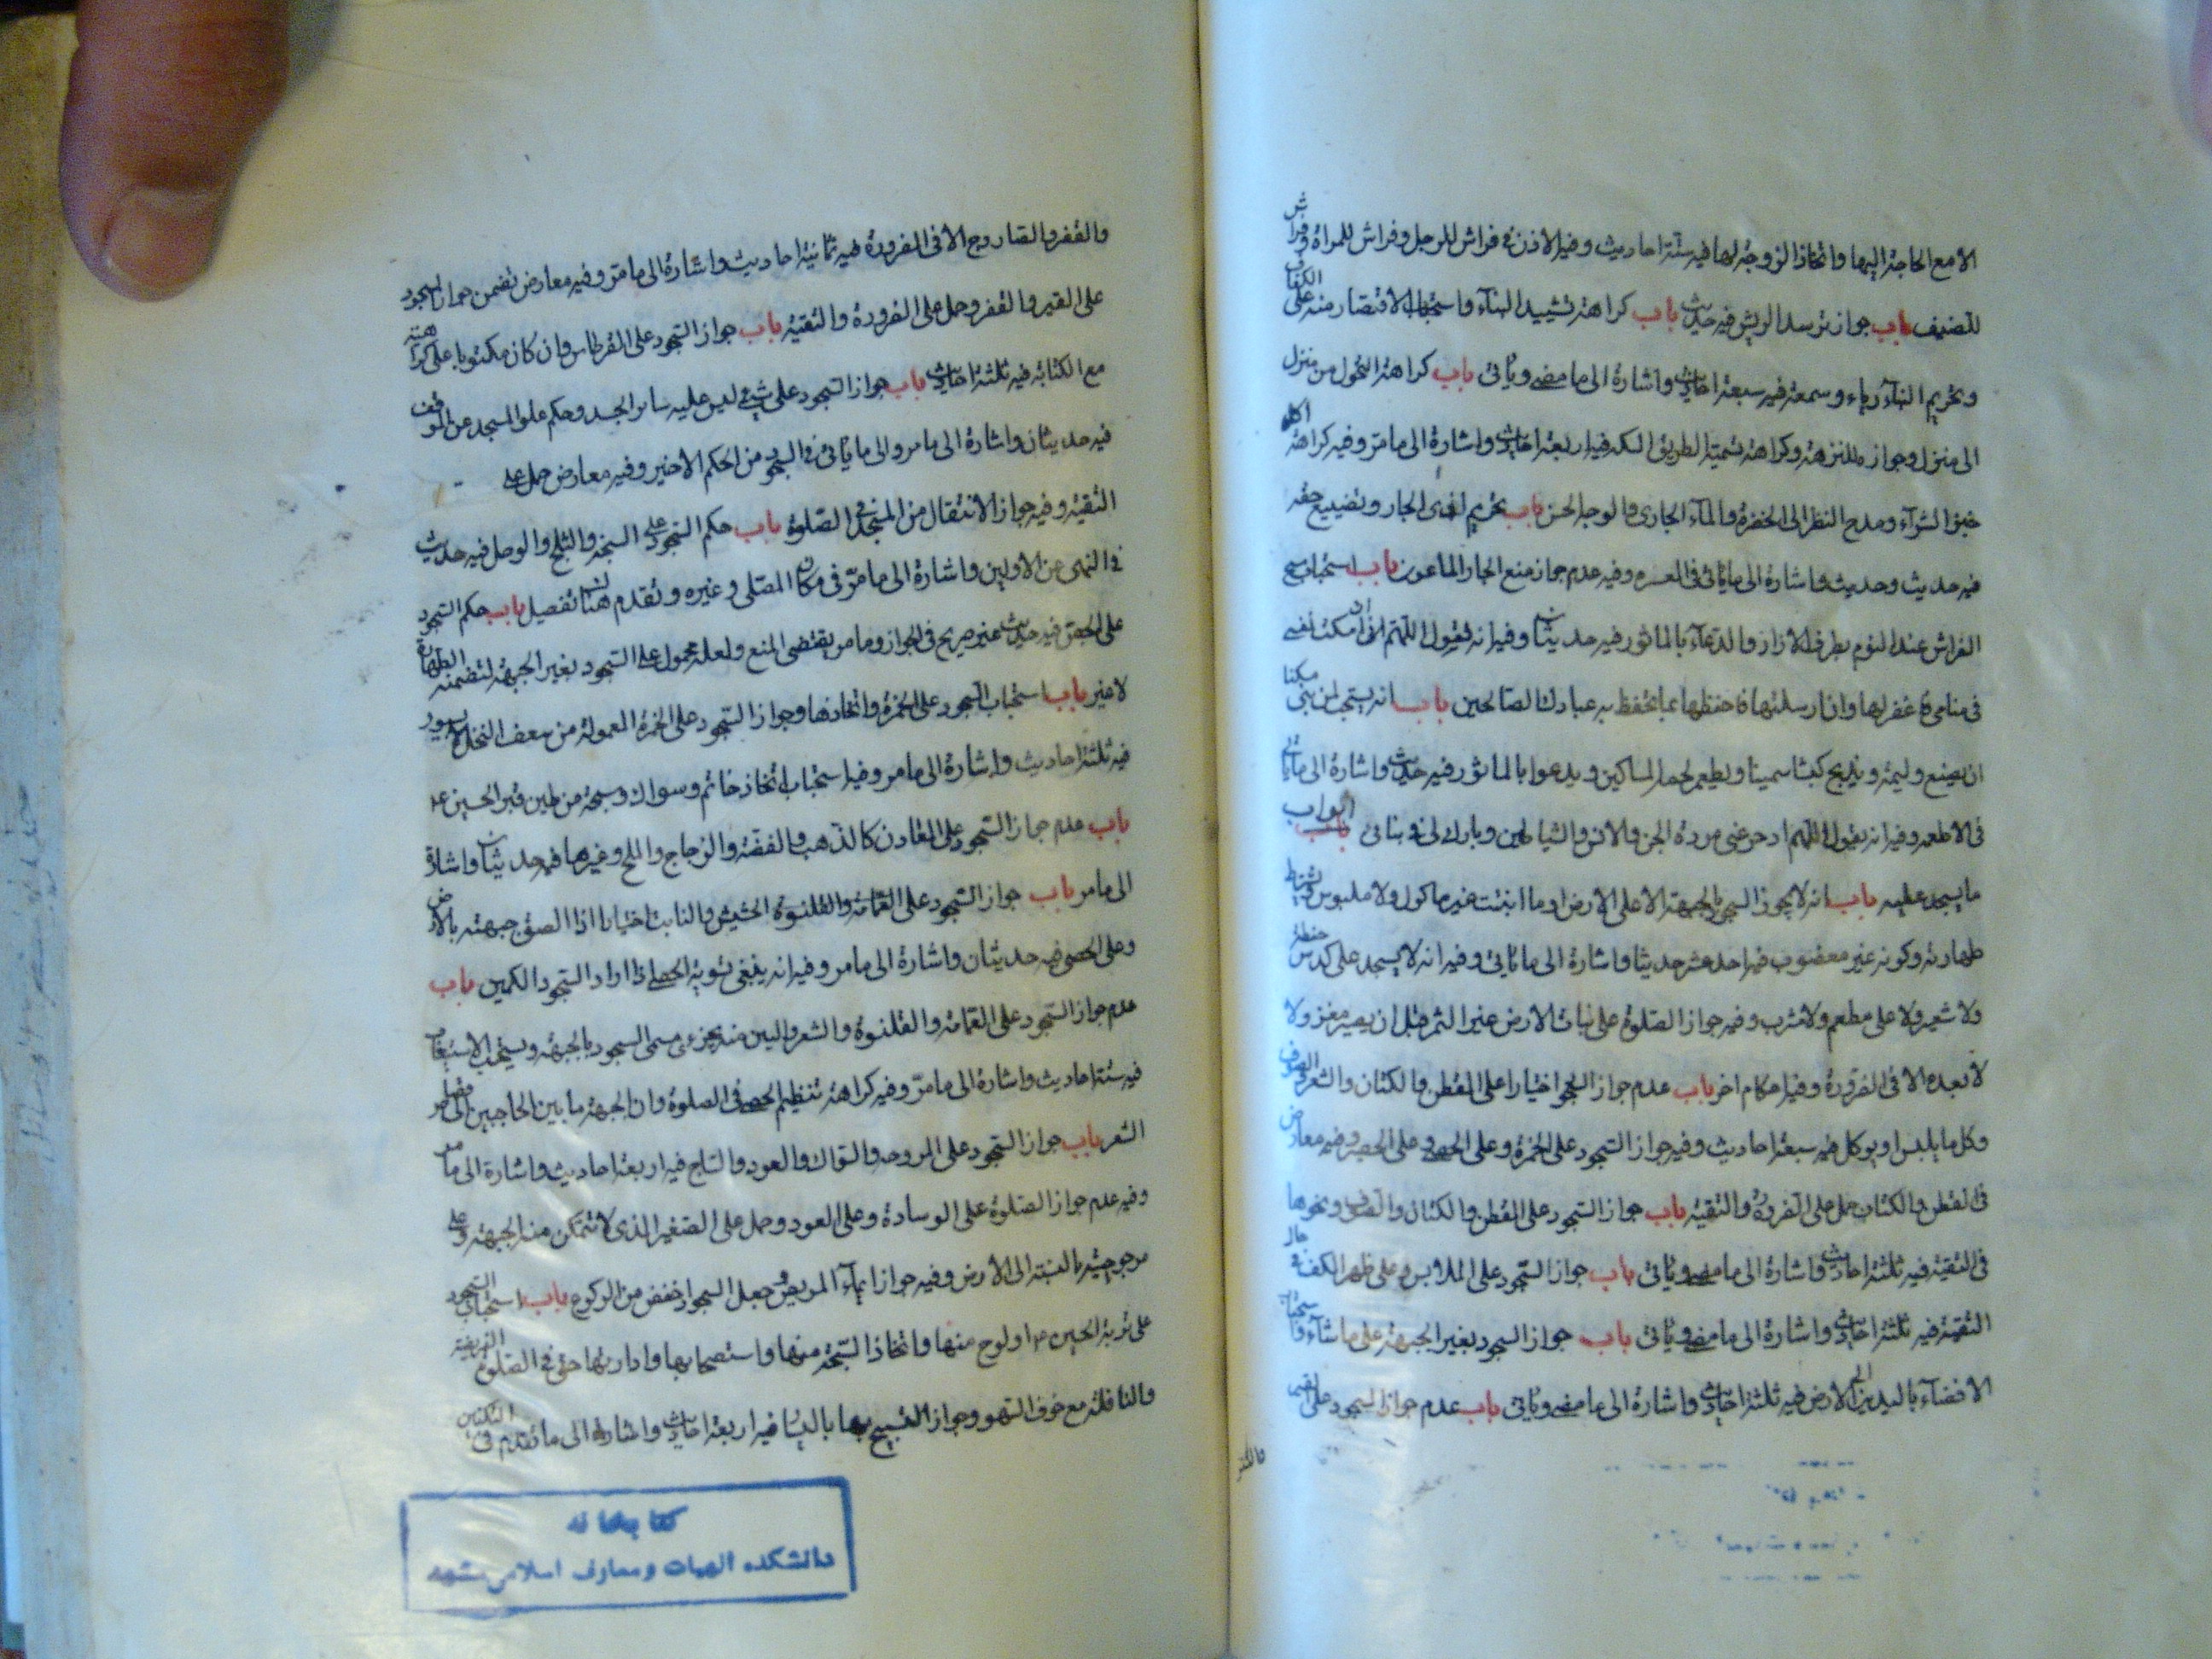 الا مع الحاجة اليها واتخاذ الزوجة لها فيه ستة احاديث وفيه الاذن في فراش للرجل وفراش للمراة وفراش
للضيف باب جواز توسد الريش فيه حديث باب كراهة تشييد البناء واستحباب الاقتصار منه على الكفاف
وتحريم البناء رياء وسمعة فيه سبعة احاديث واشارة الى ما مضى وياتي باب كراهة التحول من منزل
الى منزل وجوازه للنزهة وكراهة تسمية الطريق السكة فيه اربعة احاديث واشارة الى ما مر وفيه كراهة اكل
خبز الشراء ومدح النظر الى الخضرة والماء الجاري والوجه الحسن باب تحريم اذى الجار وتضييع حقه
فيه حديث وحديث واشارة الى ما ياتي في العشرة وفيه عدم جواز منع الجار الماعون باب استحباب مسح
الفراش عند النوم بطرف الازار والدعاء بالماثور فيه حديثان وفيه انه يقول اللهم ان امسكت نفسي
في منامي فاغفر لها وان ارسلتها فاحفظها بما تحفظ به عبادك الصالحين باب انه يستحب لمن بنى مسكنا
ان يصنع وليمة ويذبح كبشا سمينا ويطعم لحمه المساكين ويدعوا بالماثور فيه حديث واشارة الى ما ياتي
في الاطعمة وفيه انه يقول اللهم ادحر عني مردة الجن والانس والشياطين وبارك لي في بنائي ابواب
ما يسجد عليه باب انه لا يجوز السجود بالجبهة الا على الارض او ما انبتت غير ماكول ولا ملبوس ويشترط
طهارته وكونه غير مغصوب فيه احد عشر حديثا واشارة الى ما ياتي وفيه انه لا يسجد على كدس حنطة
ولا شعير ولا على مطعم ولا مشرب وفيه جواز الصلوة على نبات الارض غير الثمر قبل ان يصير مغز ولا
لا بعده الا في الضرورة وفيه احكام اخر باب عدم جواز السجود اختيارا على القطن والكتان والشعر والصوف
وكل ما يلبس او يوكل فيه سبعة احاديث وفيه جواز السجود على الخمرة وعلى الحصى وعلى الحصير وفيه معارض
في القطن والكتان حمل على الضرورة والتقية باب جواز السجود على القطن والكتان والصوف ونحوها
في التقية فيه ثلثة احاديث واشارة الى ما مضى وياتي باب جواز السجود على الملابس وعلى ظهر الكف في حال
التقية فيه ثلثة احاديث واشارة الى ما مضى وياتي باب جواز السجود بغير الجبهة على ما شاء واستحباب
الافضاء باليدين الى الارض فيه ثلثة احاديث واشارة الى ما مضى وياتي باب عدم جواز السجود على القير
والقفر
والقفر والصاروج الا في الضرورة فيه ثمانية احاديث واشارة الى ما مر وفيه معارض تضمن جواز السجود
على القير والقفر وحمل على الضرورة والتقية باب جواز السجود على القرطاس وان كان مكتوبا على كراهية
مع الكتابة فيه ثلثة احاديث باب جواز السجود على شيء ليس عليه سائر الجسد وحكم علو المسجد عن الموقف
فيه حديثان واشارة الى ما مر والى ما ياتي في السجود من الحكم الاخير وفيه معارض حمل على
التقية وفيه جواز الانتقال من المسجد في الصلوة باب حكم السجود على السبخة والثلج والوحل فيه حديث
في النهي عن الاولين واشارة الى ما مر في مكان المصلي وغيره وتقدم هناك تفصيل باب حكم السجود
على الجص فيه حديث غير صريح في الجواز وما مر يقتضي المنع ولعله محمول على السجود بغير الجبهة لتضمنه الطهارة
لا غير باب استحباب السجود على الخمرة واتخاذها وجواز السجود على الخمرة المعمولة من سعف النخل لا بسيور
فيه ثلثة احاديث واشارة الى ما مر وفيه استحباب اتخاذ خاتم وسواك وسبحة من طين قبر الحسين ع
باب عدم جواز السجود على المعادن كالذهب والفضة والزجاج والملح وغيرها فيه حديثان واشارة
الى ما مر باب جواز السجود على العمامة والقلنسوة الحشيش والنابت اختيارا اذا الصق جبهته بالارض
وعلى الحصى فيه حديثان واشارة الى ما مر وفيه انه ينبغي تسوية الحصى اذا اراد السجود الكمين باب
عدم جواز السجود على العمامة والقلنسوة والشعر واليسير منه يجزي مسمى السجود بالجبهة ويستحب الاستيعاب
فيه ستة احاديث واشارة الى ما مر وفيه كراهة تنظيم الحصى في الصلوة وان الجبهة ما بين الحاجبين الى قصاص
الشعر باب جواز السجود على المروحة والسواك والعود والساج فيه اربعة احاديث واشارة الى ما مر
وفيه عدم جواز الصلوة على الوسادة وعلى العود وحمل على الصغير الذي لا تتمكن منه الجبهة وعلى
مرجوحيته بالنسبة الى الارض وفيه جواز ايماء المريض وجعل السجود اخفض من الركوع باب استحباب السجود
على تربة الحسين ع او لوح منها واتخاذ السبحة منها واستصحابها وادارتها حتى في الصلوة الفريضة
والنافلة مع خوف السهو وجواز التسبيح بها باليسار فيه اربعة احاديث واشارة الى ما تقدم في التكفين
كتابخانه
دانشكده الهيات ومعارف اسلامى مشهد